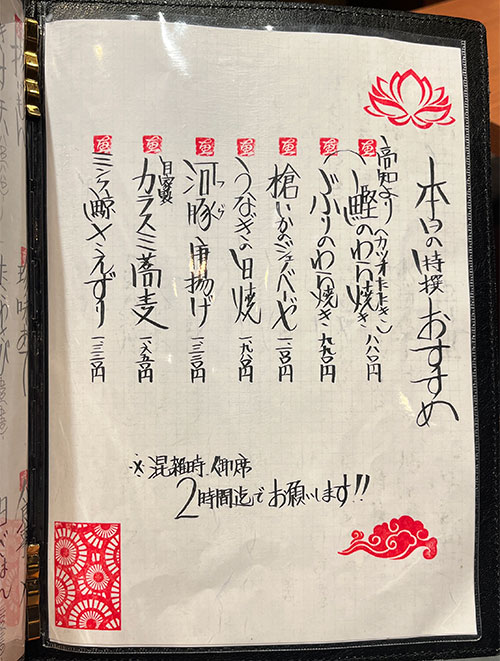 本日の特撰おすすめ
高知より(カツオたたき)
鰹のわら焼き 八八〇円
ぶりのわら焼き 九九〇円
槍いかのジェノベーゼ 円
うなぎの白焼 円
ふぐ
河豚唐揚げ 円
自家製
カラスミ蕎麦 円
ミンク鯨さえずり 円
※混雑時、御席
2時間迄でお願いします!!